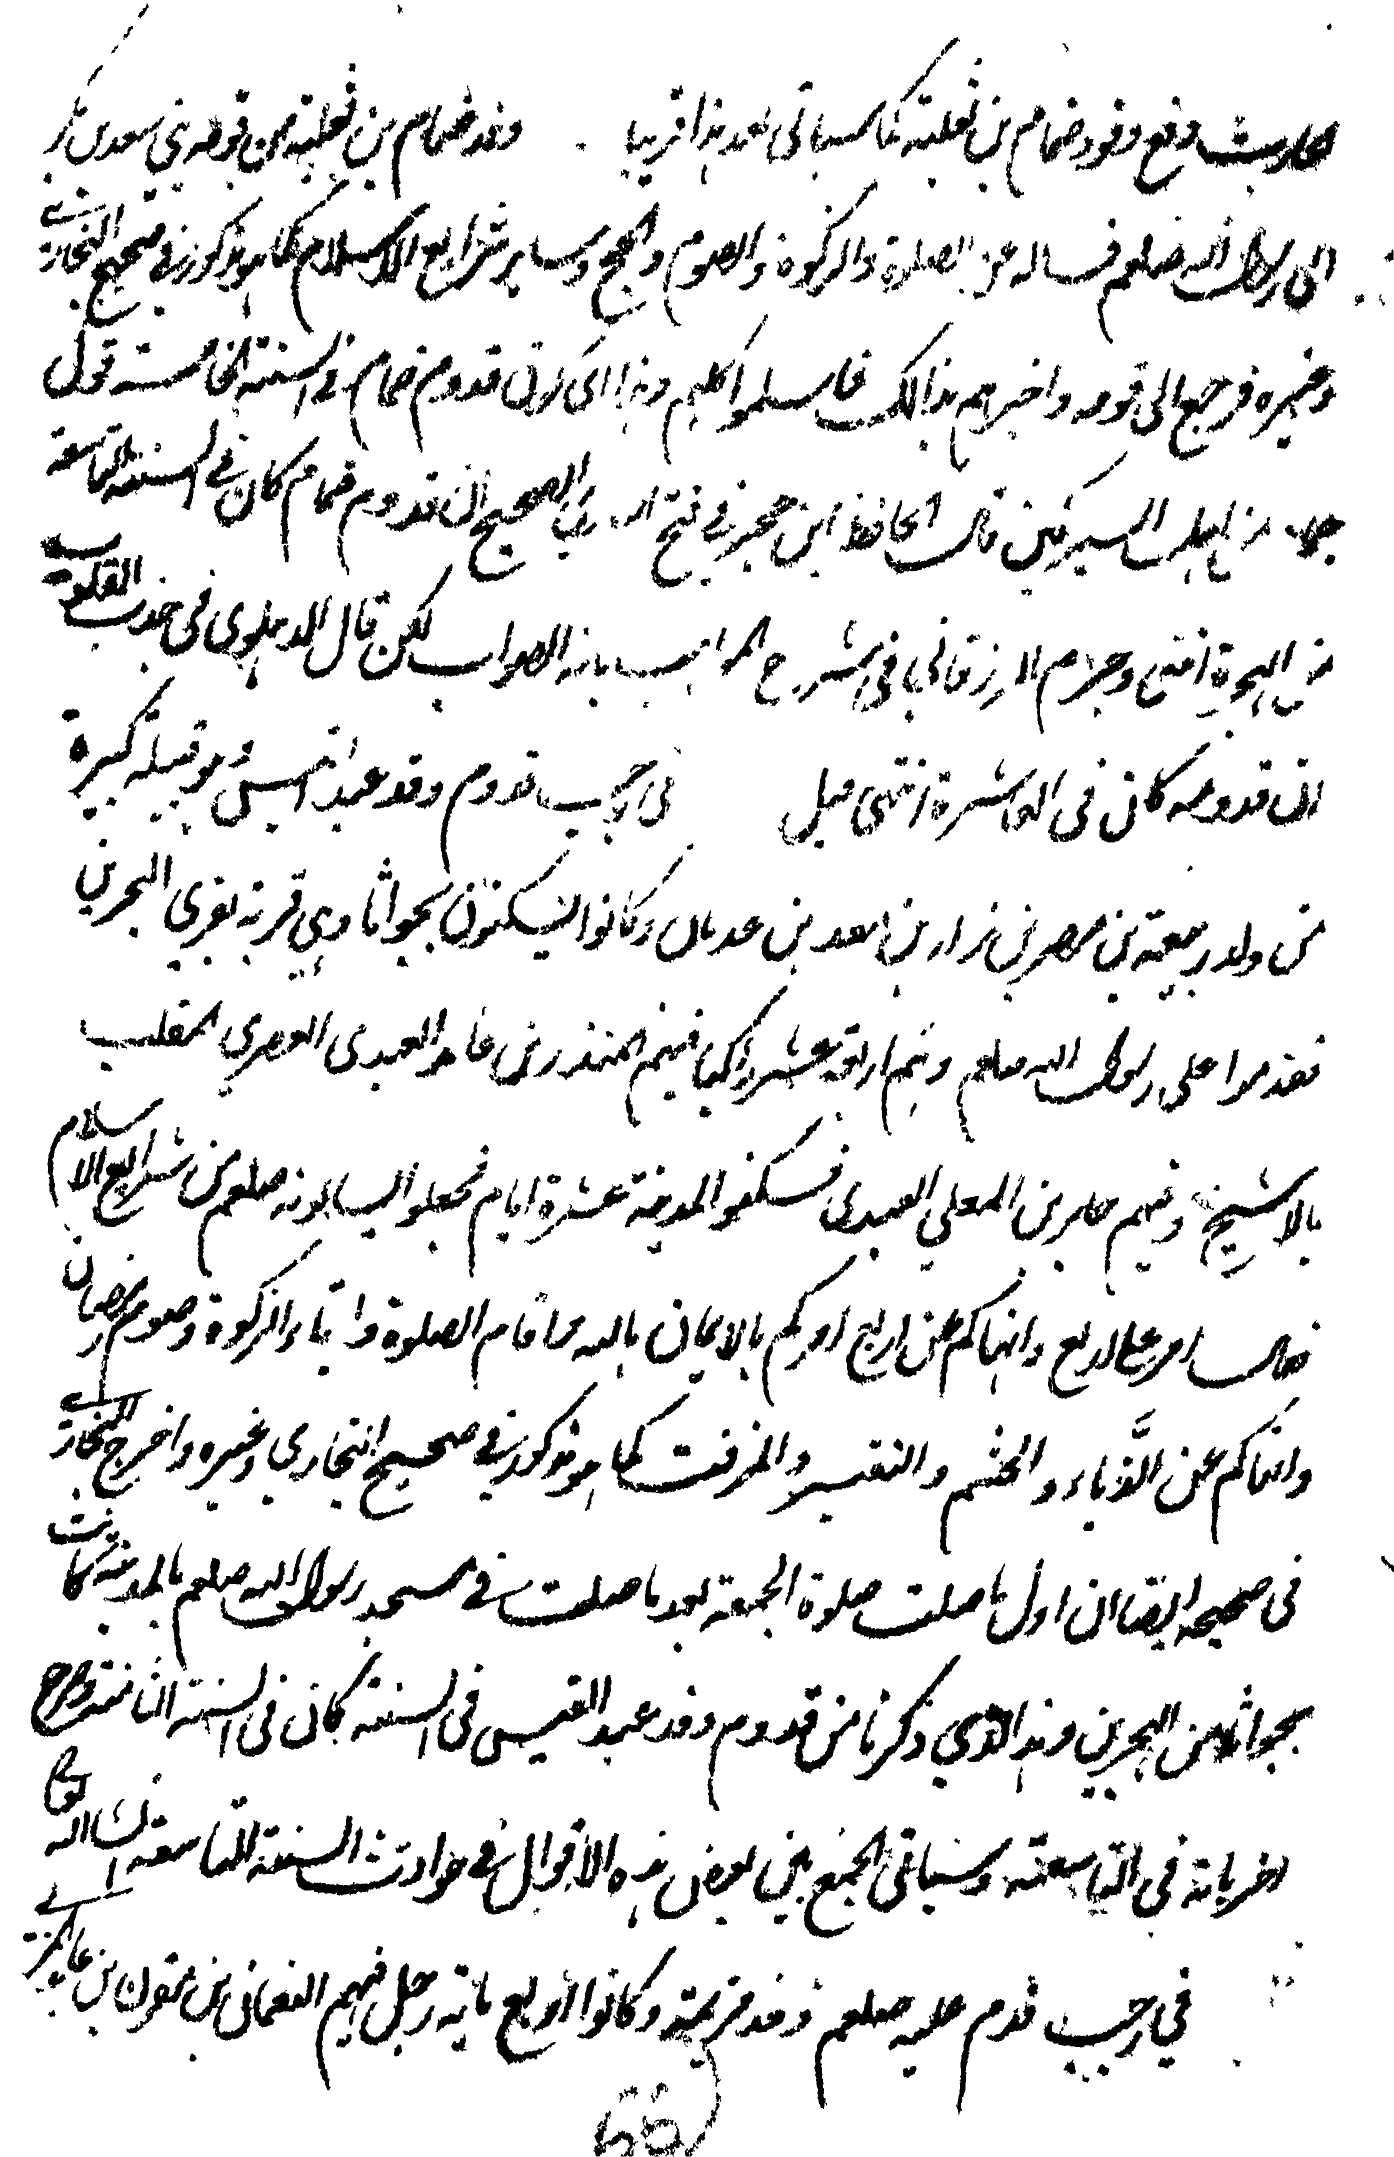 الحارث وقع وفود ضمام بن ثعلبة كما سياتى بعد هذا قريبا وفد ضمام بن ثعلبة من قومه بني سعد بن بكر
الى رسول الله صلعم فساله عن الصلوة والزكوة والصوم والحج وساير شرايع الاسلام كما هو مذكور في صحيح البخاري
وغيره فرجع الى قومه واخبرهم بذالك فاسلموا كلهم وهذا اى كون قدوم ضمام في السنة الخامسة قول
جماعة من اهل السير لكن قال الحافظ ابن حجر في فتح الباري الصحيح ان قدوم ضمام كان في السنة التاسعة
من الهجرة انتهى وجزم الزرقاني في شرح المواهب بانه الصواب لكن قال الدهلوى في جذب القلوب
ان قدومه كان في العاشرة انتهى قيل في رجب قدوم وفد عبد القيس وهو قبيلة كبيرة
من ولد ربيعة بن مضر بن نزار بن معد بن عدنان وكانوا يسكنون بجواثا وهي قرية بقرى البحرين
فقدموا على رسول الله صلعم وهم اربعة عشر راكبا فيهم المنذر بن عامر العبدى العصري الملقب
بالاشيخ وفيهم جابر بن المعلى العبدى فسكنوا المدينة عشرة ايام فجعلوا يسالونه صلعم من شرايع الاسلام
فقال امركم باربع وانهاكم عن اربع امركم بالايمان بالله واقام الصلوة وايتاء الزكوة وصوم رمضان
وانهاكم عن الدُّباء والحنتم والنقير والمزفت كما هو مذكور في صحيح البخاري وغيره واخرج البخاري
في صحيحه ايضا ان اول ما صليت صلوة الجمعة بعد ما صليت في مسجد رسول الله صلعم بالمدينة كانت
بجواثا من البحرين وهذا الذي ذكرنا من قدوم وفد عبد القيس في السنة كان في السنة الثامنة وصرح
اخر بانه في التاسعة وسياتى الجمع بين بعض هذه الاقوال في حوادث السنة التاسعة انشاء الله تعالى
في رجب قدم عليه صلعم وفد مزينة وكانوا اربع مايه رجل فيهم النعمان بن مقرن بن عايذ المزني